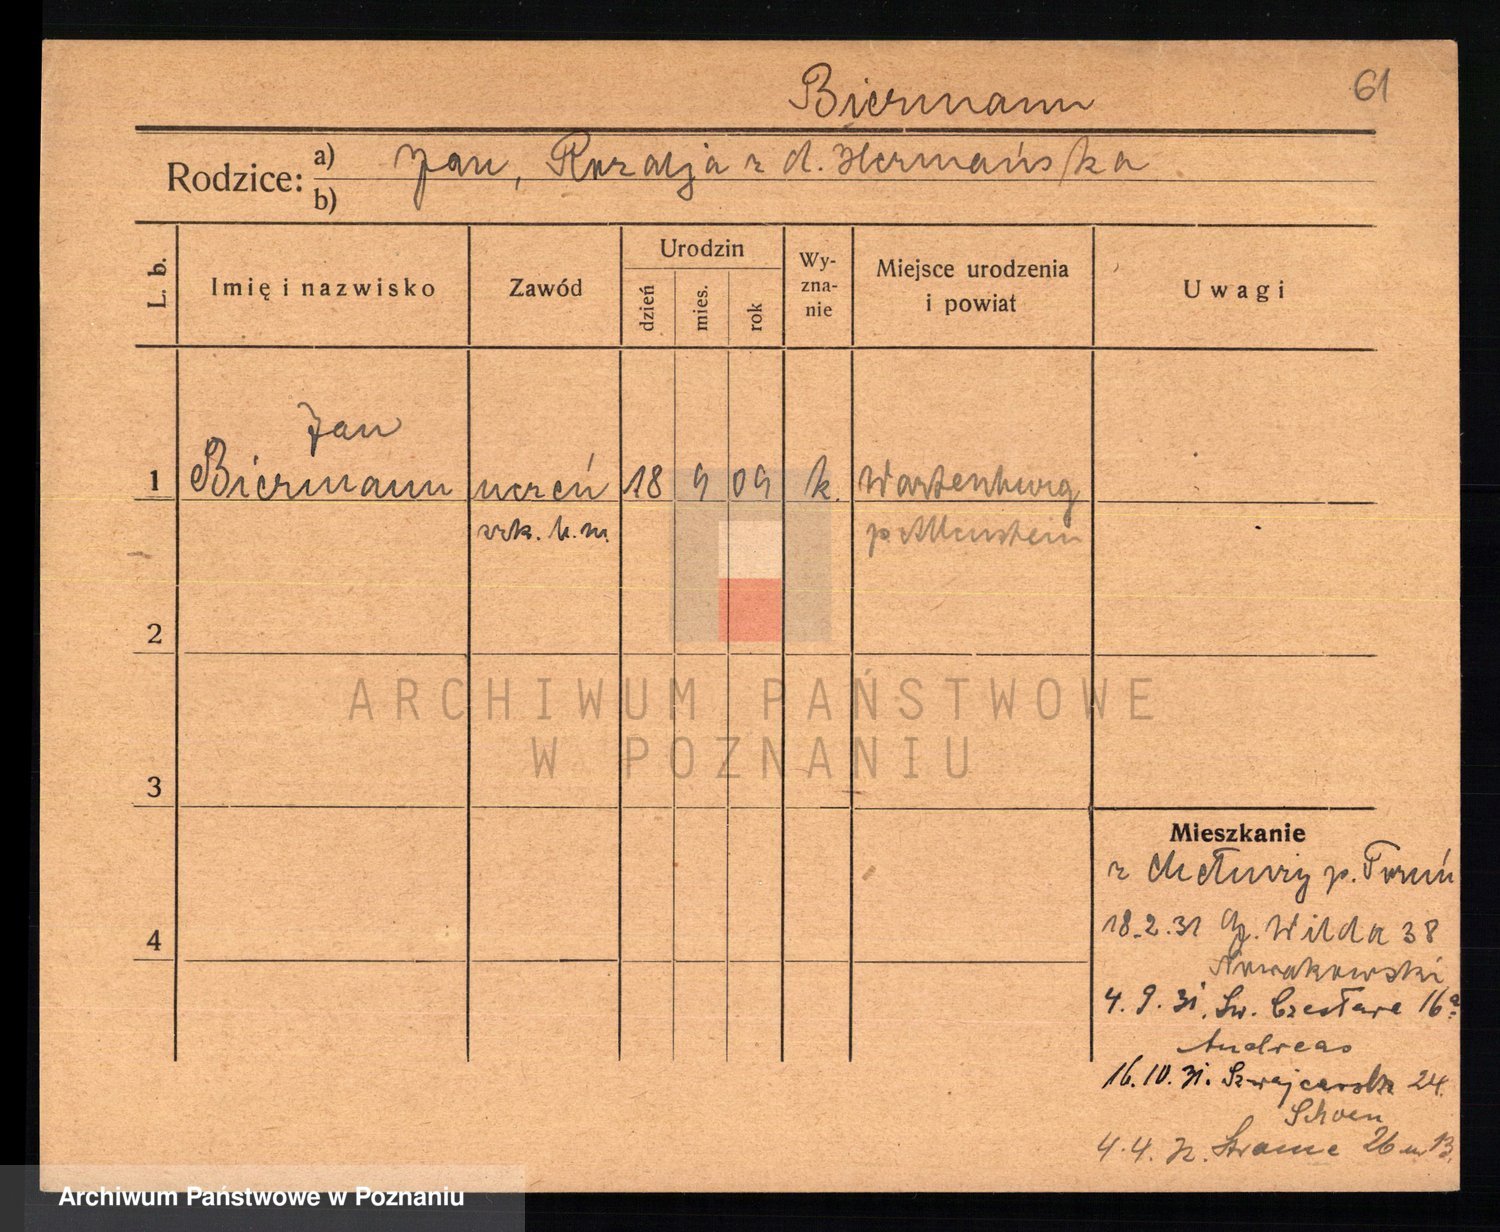 Biermann
61
Rodzice: a) Jan, Rozalja z d. Hermańska
b)
L. b.
Imię i nazwisko
Zawód
Urodzin
dzień
mies.
rok
Wy-
zna-
nie
Miejsce urodzenia
i powiat
Uwagi
Jan
1 Biermann uczeń 18 9 09 k. Wartenburg
szk. b. m. p. Allenstein
2
3
4
ARCHIWUM PAŃSTWOWE
W POZNANIU
Mieszkanie
z p. Toruń
18.2.31 Wilda 38
Nowakowski
4.9.31. Św. Czesława 16a
Andreas
16.10.31. Szwajcarska 24.
Schoen
4.4.32. Strome 26 m 13.
Archiwum Państwowe w Poznaniu